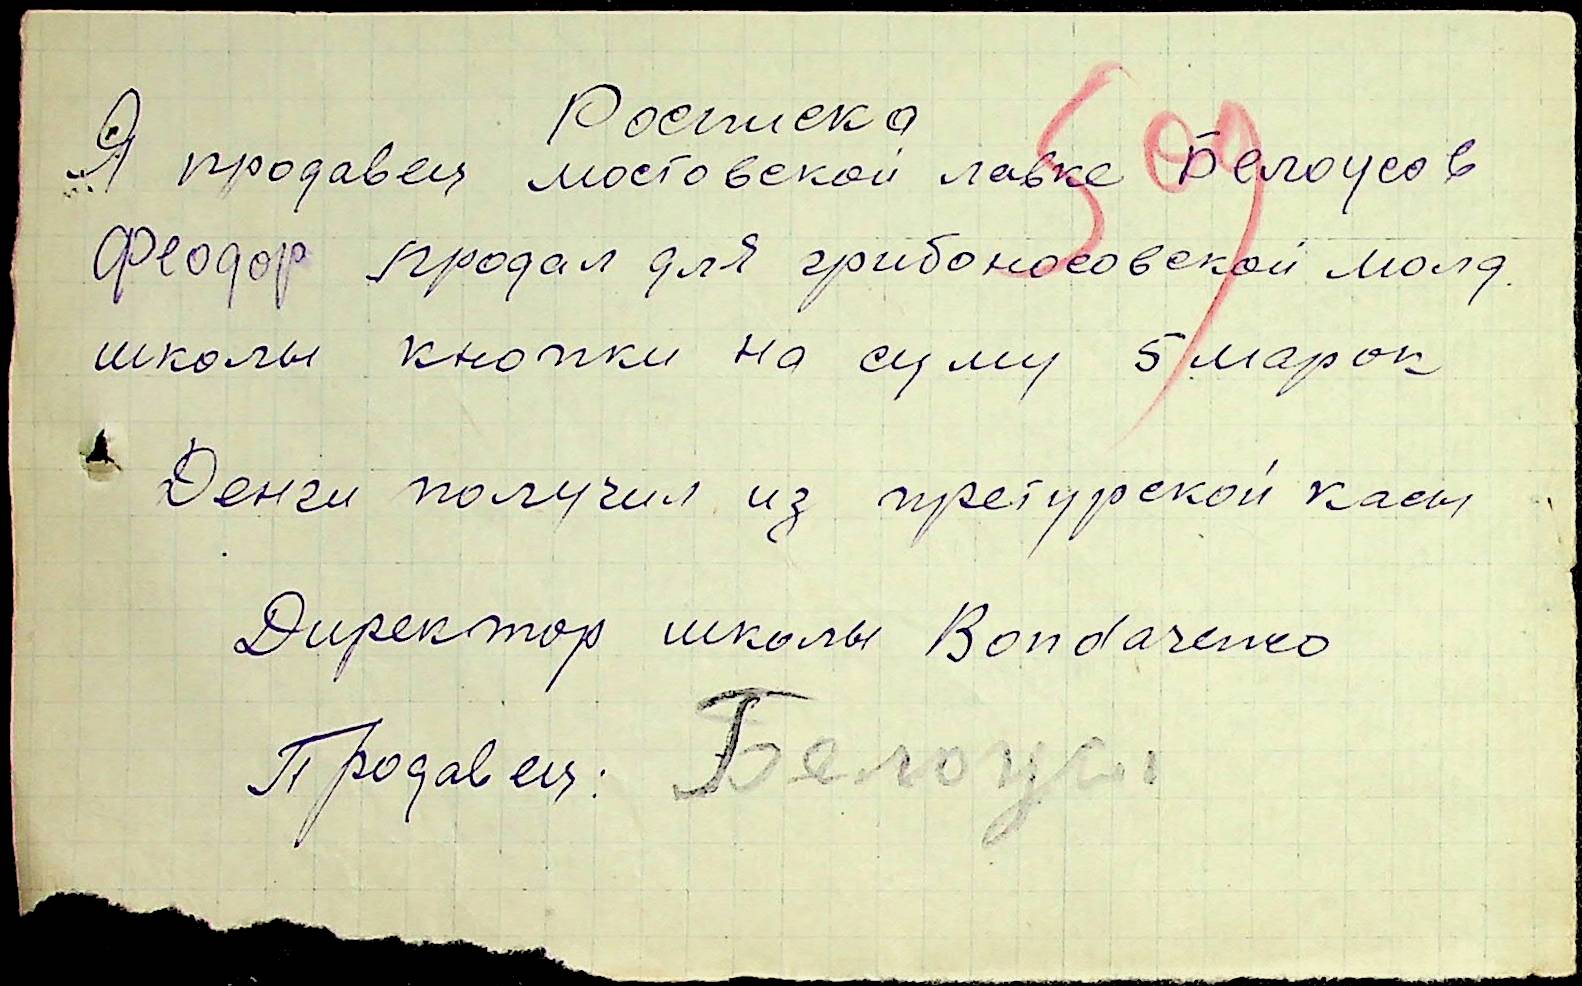 Росписка
500
Я продавец мостовской лавке Белоусов
Феодор продал для грибоносовской молд.
школы кнопки на суму 5 марок
Денги получил из претурской касы
Директор школы Bondarenco
Продавец: Белоус